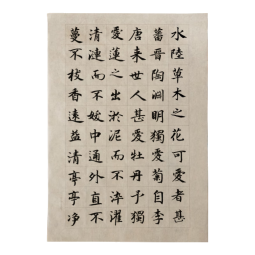 水陸草木之花可愛者甚
蕃晉陶淵明獨愛菊自李
唐来世人甚愛牡丹予獨
愛蓮之出淤泥而不淬濯
清漣而不妖中通外直不
蔓不枝香遠益清亭亭净